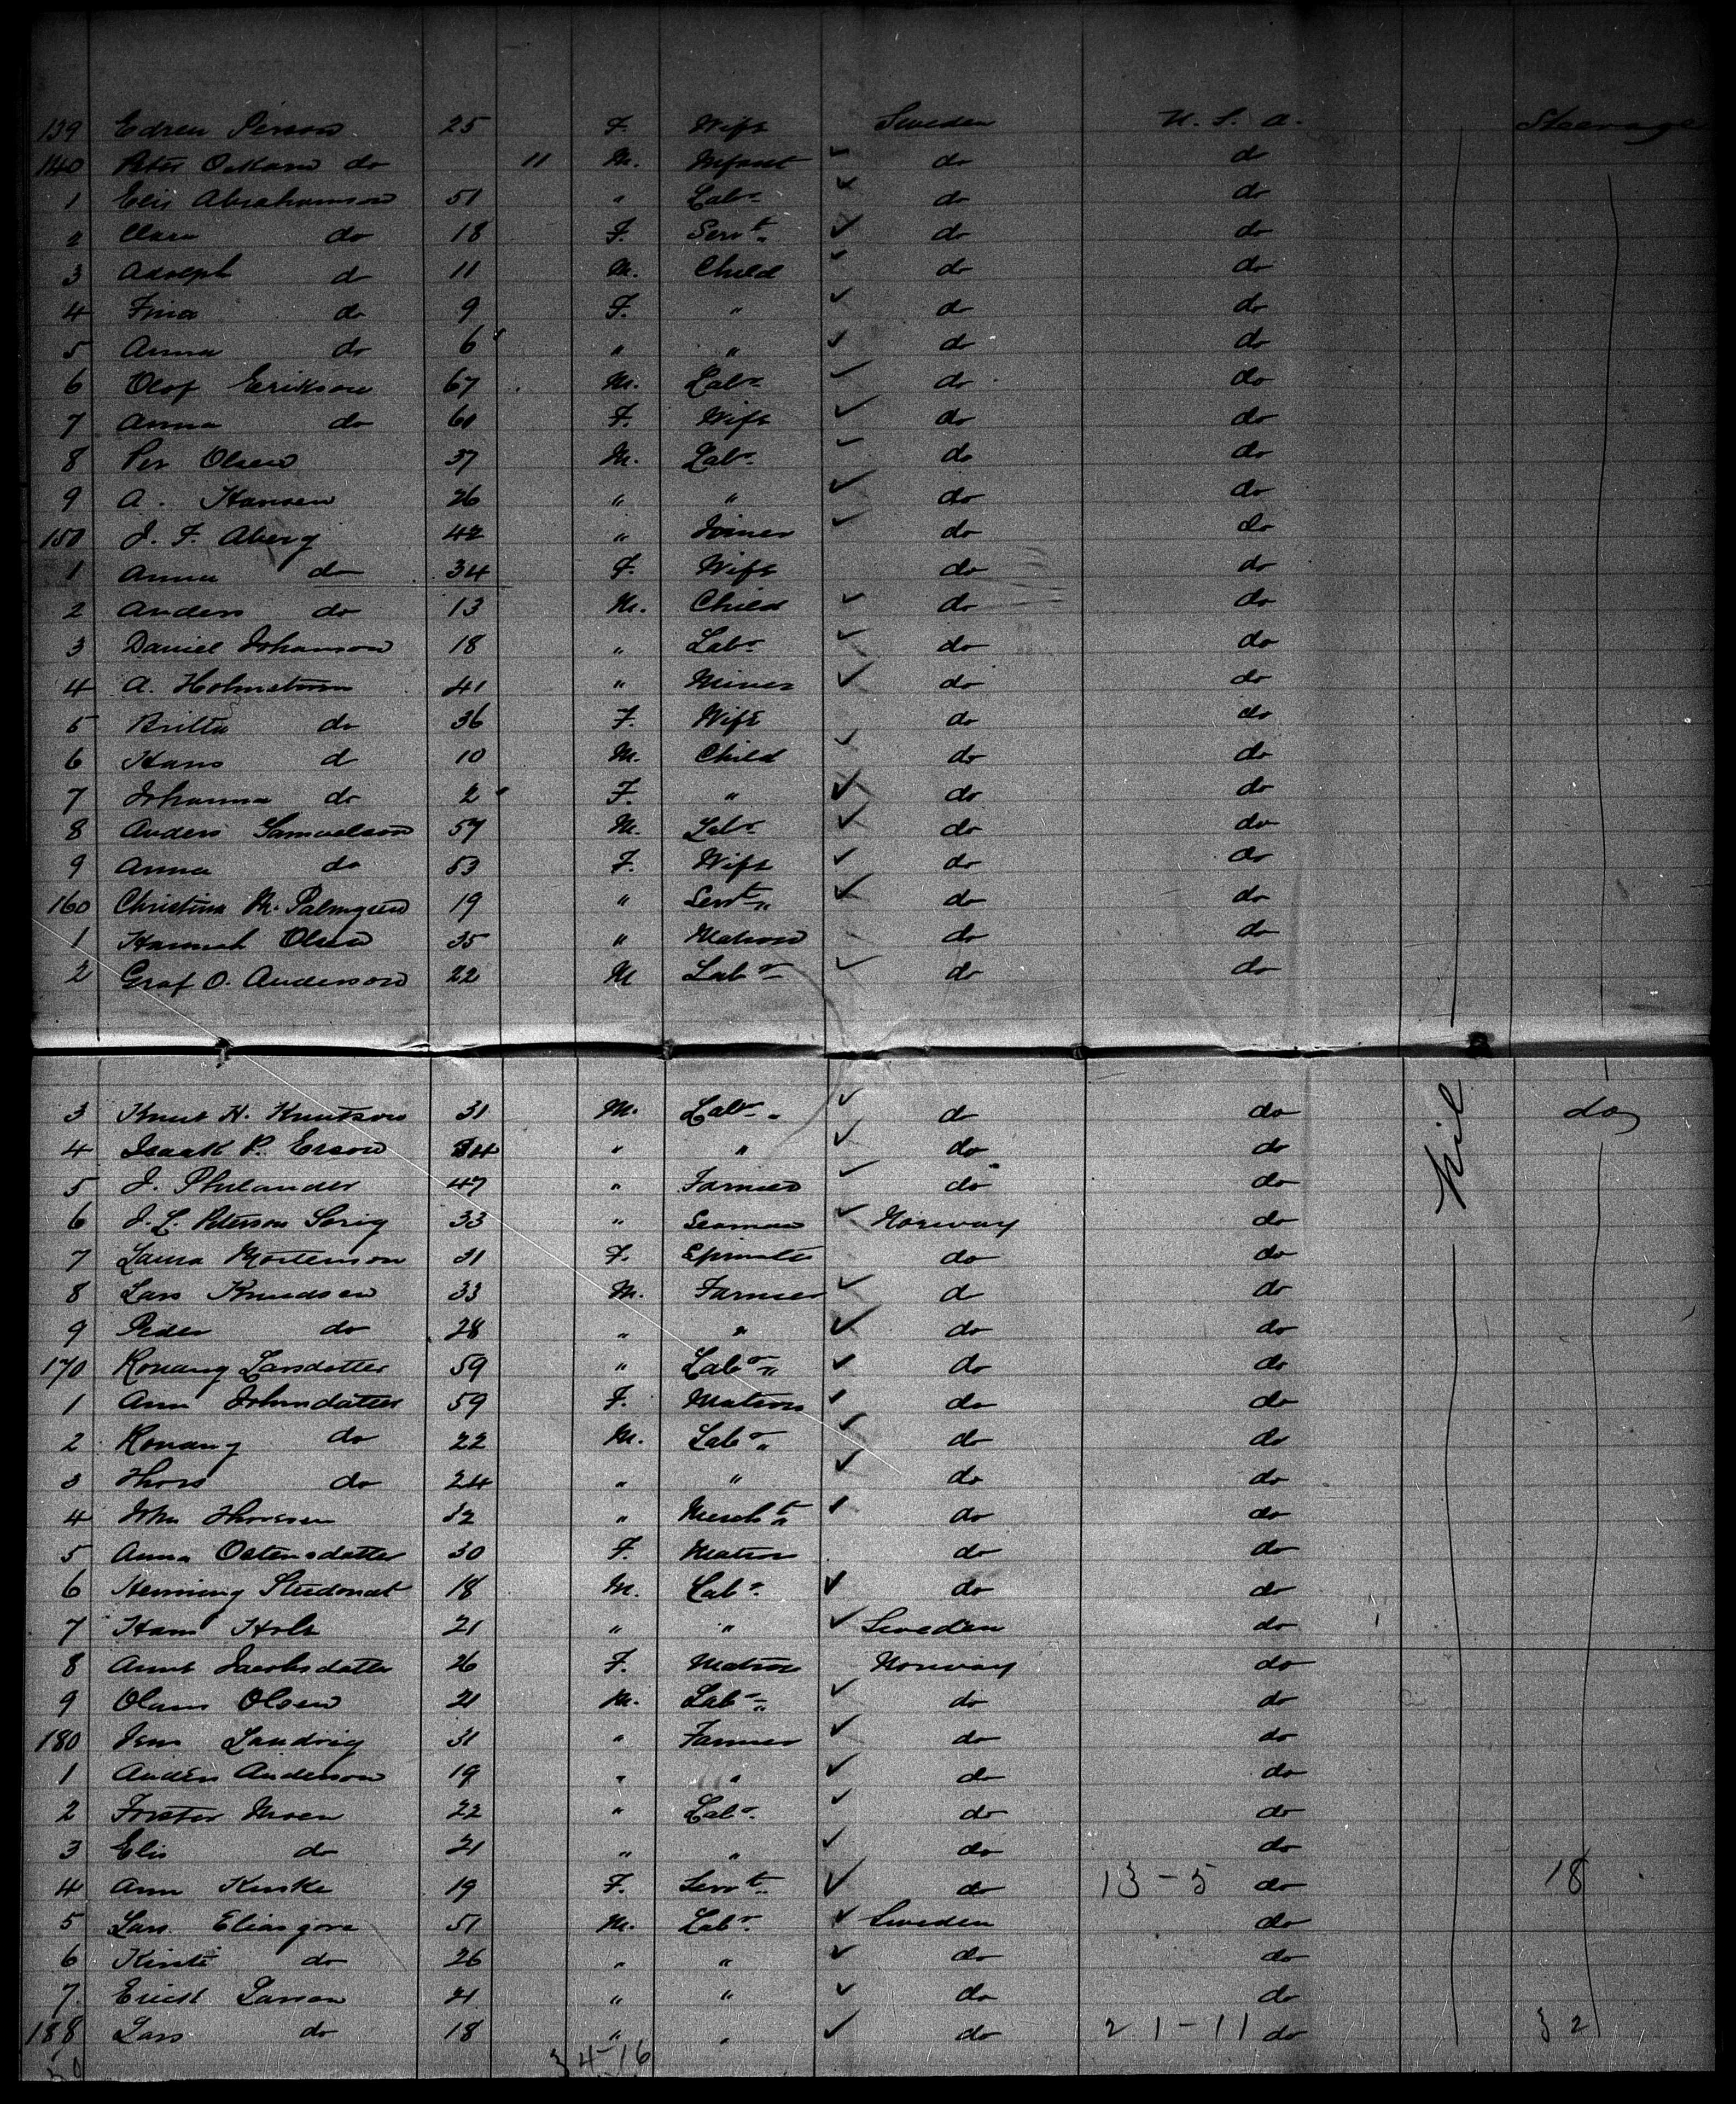 139 Edreu Person 25 F. Wife Sweden U. S. A. Steerage
140 Peter Oskand do 11 M. Infant do do
1 Elis Abrahamson 51 " Labr do do
2 Clara do 18 F. Servt do do
3 Adolph do 11 M. Child do do
4 Fina do 9 F. " do do
5 Anna do 6 " " do do
6 Olof Erikson 67 M. Labr do do
7 Anna do 60 F. Wife do do
8 Per Olsen 37 M. Labr do do
9 A. Hansen 26 " " do do
150 J. F. Aberg 42 " Joiner do do
1 Anna do 34 F. Wife do do
2 Anders do 13 M. Child do do
3 Daniel Johanson 18 " Labr do do
4 A. Holmstrom 41 " Miner do do
5 Britta do 36 F. Wife do do
6 Hans do 10 M. Child do do
7 Johanna do 2 F. " do do
8 Anders Samuelson 57 M. Labr do do
9 Anna do 53 F. Wife do do
160 Christina M. Palmgren 19 " Servt do do
1 Hannah Olsen 35 " Matron do do
2 Graf O. Anderson 22 M Labr do do
3 Knut H. Knutson 31 M. Labr do do Nil do
4 Isaak P. Erson 34 " " do do
5 J. Philander 47 " Farmer do do
6 J. L. Peterson Sorig 33 " Seaman Norway do
7 Laura Mortenson 31 F. Spinster do do
8 Lars Knudsen 33 M. Farmer do do
9 Peder do 28 " " do do
170 Konang Larsdatter 59 " Labr do do
1 Ann Johnsdatter 59 F. Matron do do
2 Konang do 22 M. Labr do do
3 Thors do 24 " " do do
4 John Thorssen 32 " Mercht do do
5 Anna Ostensdatter 30 F. Matron do do
6 Henning 18 M. Labr do do
7 Hans Holt 21 " " Sweden do
8 Anne Jacobsdatter 26 F. Matron Norway do
9 Olans Olsen 21 M. Labr do do
180 Jens Landvig 31 " Farmer do do
1 Anders Anderson 19 " " do do
2 Forster Moen 22 " Labr do do
3 Elis do 21 " " do do
4 Ann Kirske 19 F. Servt do 13 - 5 do 18
5 Lars Eliasgora 51 M. Labr Sweden do
6 Kirsti do 26 " " do do
7 Erick Larson 21 " " do do
188 Lars do 18 " " do 21 - 11 do 32
50 34-16